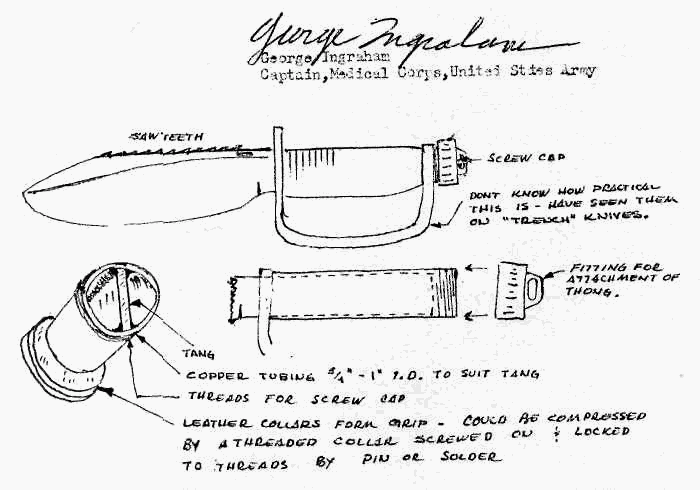 George Ingraham
George Ingraham
Captain,Medical Corps,United Sttes Army
SAW TEETH
SCREW CAP
DONT KNOW HOW PRACTICAL
THIS IS - HAVE SEEN THEM
ON "TRENCH" KNIVES.
FITTING FOR
ATTACHMENT OF
THONG.
TANG
COPPER TUBING 3/4" - 1" I.D. TO SUIT TANG
THREADS FOR SCREW CAP
LEATHER COLLARS FORM GRIP - COULD BE COMPRESSED
BY A THREADED COLLAR SCREWED ON & LOCKED
TO THREADS BY PIN OR SOLDER